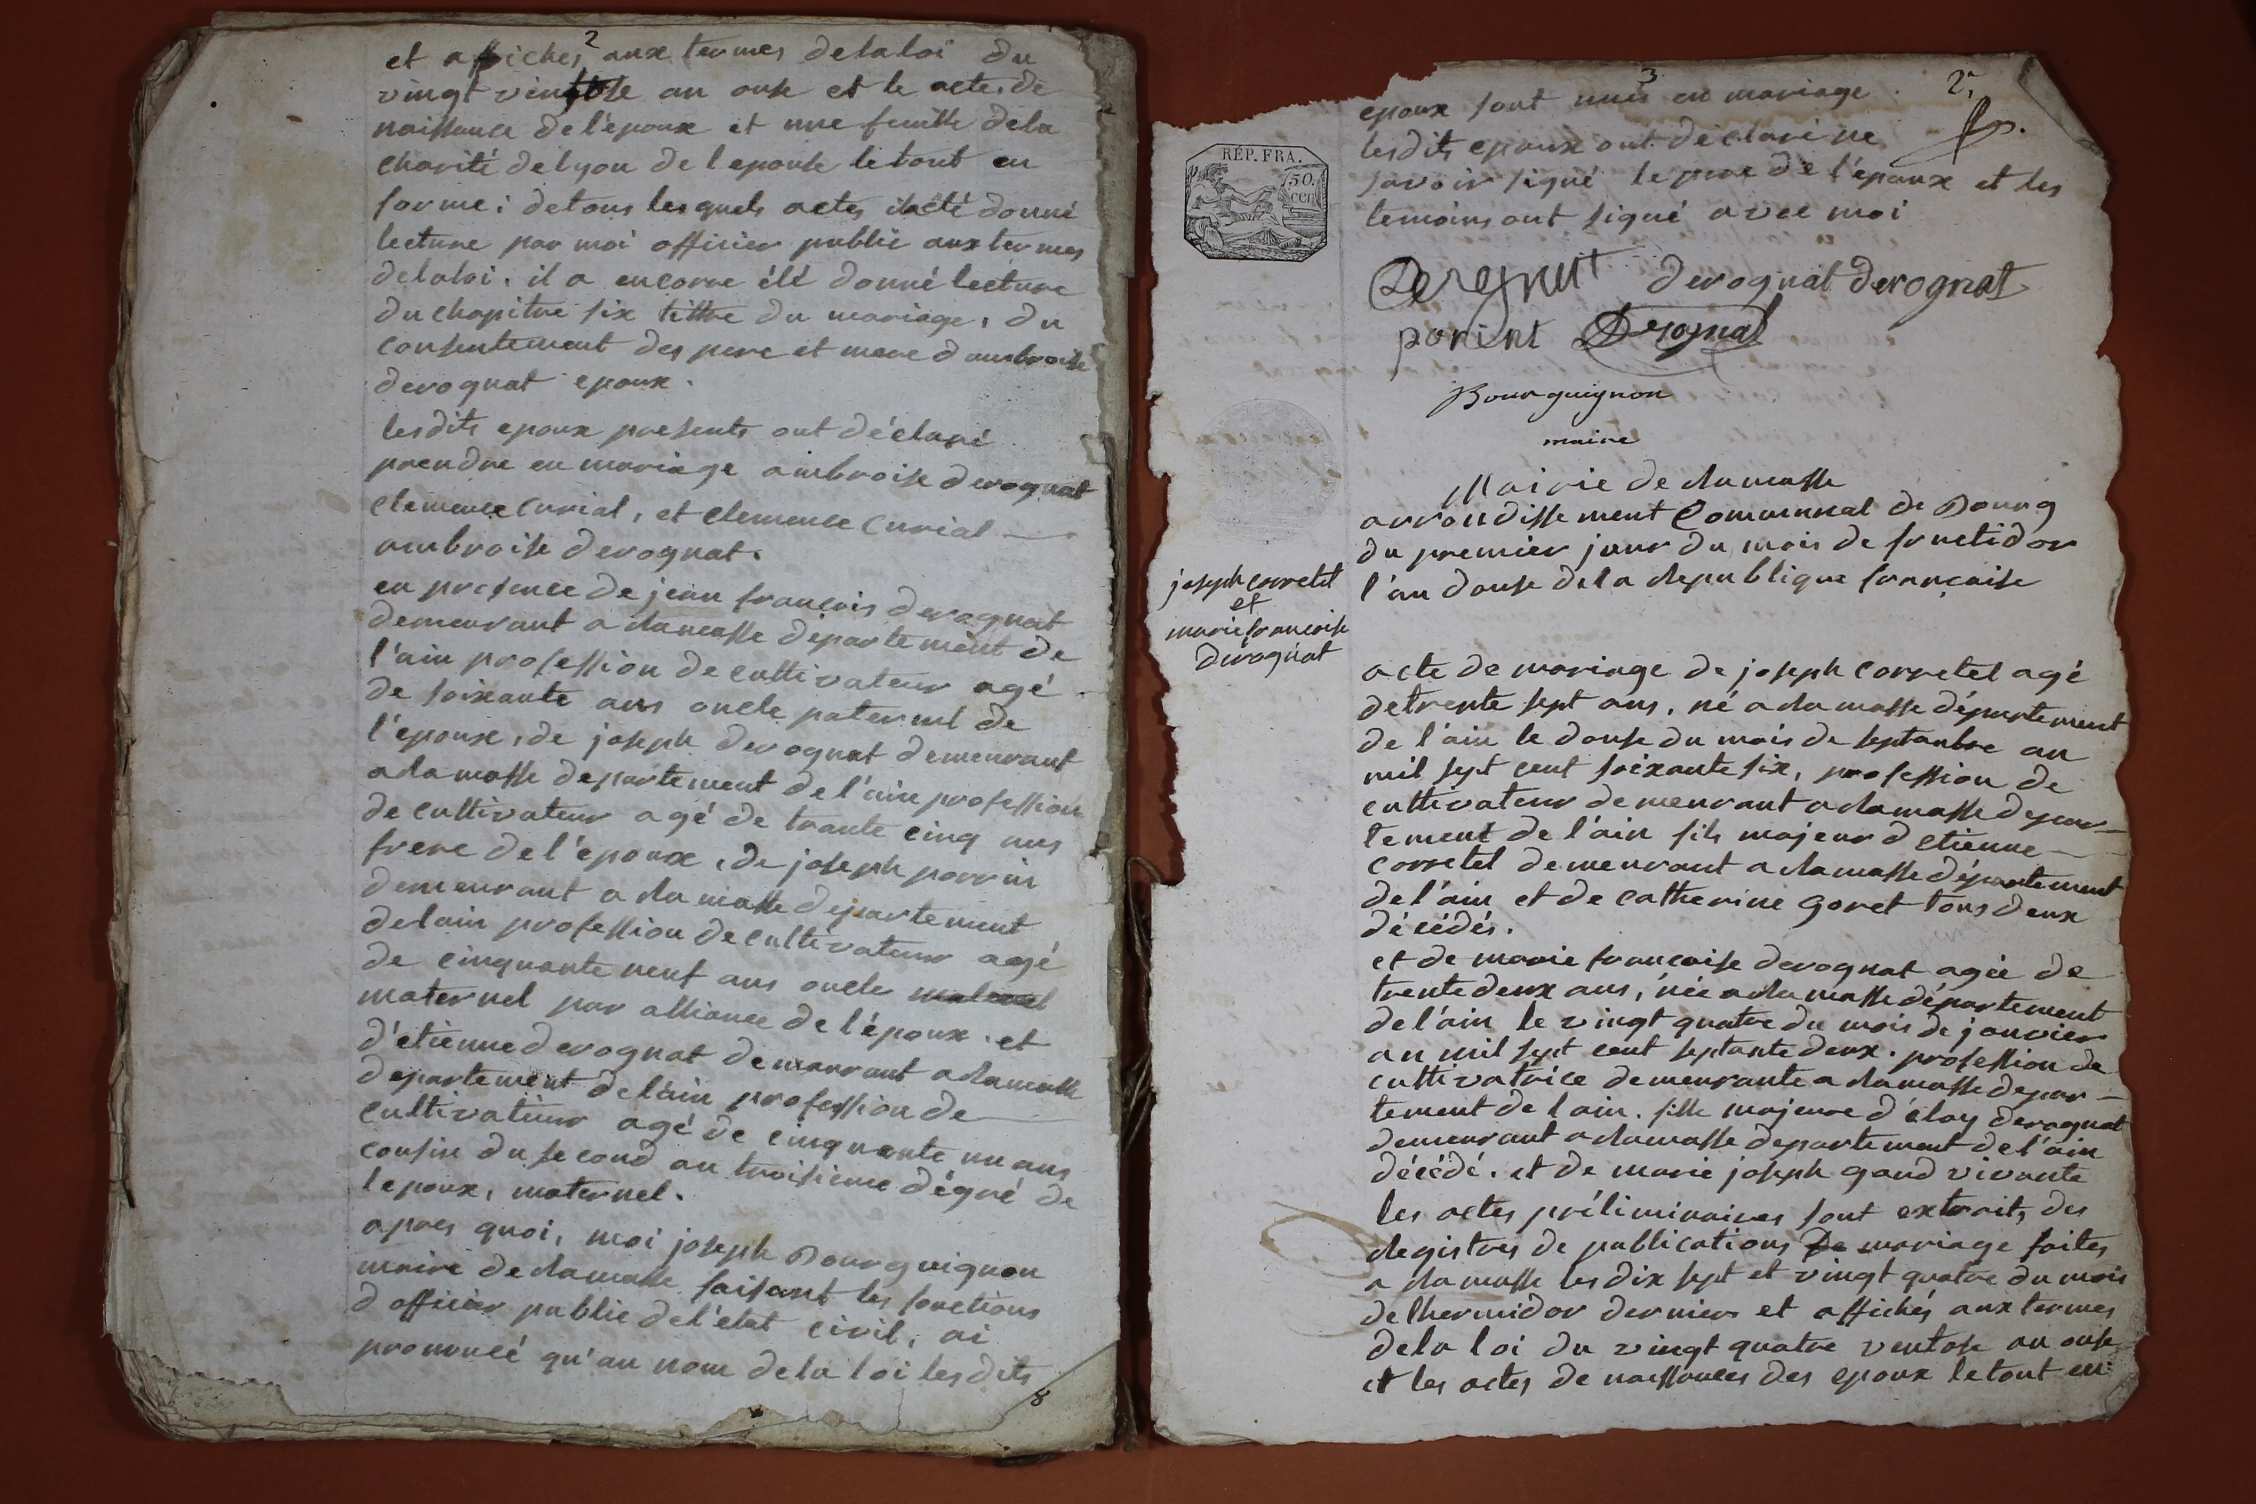 2
et affiches aux termes delaloi du
vingt ventose an onse et le acte de
naissance de l'epoux et une feuille dela
charité de lyon de l epouse le tout en
forme; detous lesquels actes il a été donné
lecture par moi officier public aux termes
delaloi. il a encorre été donné lecture
du chapitre six tittre du mariage, du
consentement des pere et mere d ambroise
derognat epoux.
lesdits epoux presents ont déclaré
prendre en mariage ambroise derognat
clemence curial, et clemence curial
ambroise derognat.
en presence de jean francois derognat
demeurant a ramasse département de
l'ain profession de cultivateur agé
de soixante ans oncle paternel de
l'époux, de joseph derognat demeurant
a ramasse departement de l'ain profession
de cultivateur agé de trante cinq ans
frere de l'époux, de joseph porrin
demeurant a ramasse departement
delain profession de cultivateur agé
de cinquante neuf ans oncle
maternel par alliance de l'époux. et
d'étienne derognat demeurant a ramasse
departement de lain profession de
cultivateur agé de cinquante un ans
cousin du second au troisieme dégré de
lepoux, maternel.
apres quoi, moi joseph Bourguignon
maire de ramasse faisant les fonctions
d officier public de l'état civil, ai
prononcé qu'au nom dela loi les dits
8
3
2
epoux sont unis en mariage.
lesdits epoux ont déclaré ne
savoir signé le pere de l'époux et les
temoins ont signé avec moi
RÉP. FRA.
50.
cen
derognat derognat
porint Derognat
Bourguignon
maire
Mairie de ramasse
arrondissement Communal de Bourg
du premier jour du mois de fructidor
l'an douse dela Republique francaise
joseph corretel
et
marie francoise
derognat
acte de mariage de joseph corretel agé
de trente sept ans, né a ramasse département
de l'ain le douse du mois de septanbre an
mil sept cent soixante six, profession de
cultivateur demeurant a ramasse depar-
tement de l'ain fils majeur d etienne
corretel demeurant a ramasse département
de l'ain et de catherine goret tous deux
décédés.
et de marie francoise derognat agée de
trente deux ans, née a ramasse département
de l'ain le vingt quatre du mois de janvier
an mil sept cent septante deux. profession de
cultivatrice demeurante a ramasse depar-
tement de lain. fille majeure d'éloy derognat
demeurant a ramasse departement de l'ain
décédé. et de marie joseph gand vivante
les actes préliminaires sont extraits des
registres de publications de mariage faites
a ramasse les dix sept et vingt quatre du mois
de thermidor dernier et affichés aux termes
dela loi du vingt quatre ventose an onse
et les actes de naissances des epoux le tout en